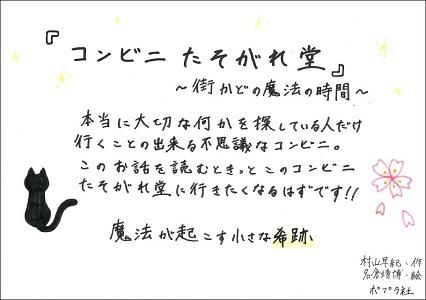 『コンビニたそがれ堂』
～街かどの魔法の時間～
本当に大切な何かを探している人だけ
行くことの出来る不思議なコンビニ。
このお話を読むときっとこのコンビニ
たそがれ堂に行きたくなるはずです!!
魔法が起こす小さな希跡
村山早紀・作
名倉靖博・絵
ポプラ社